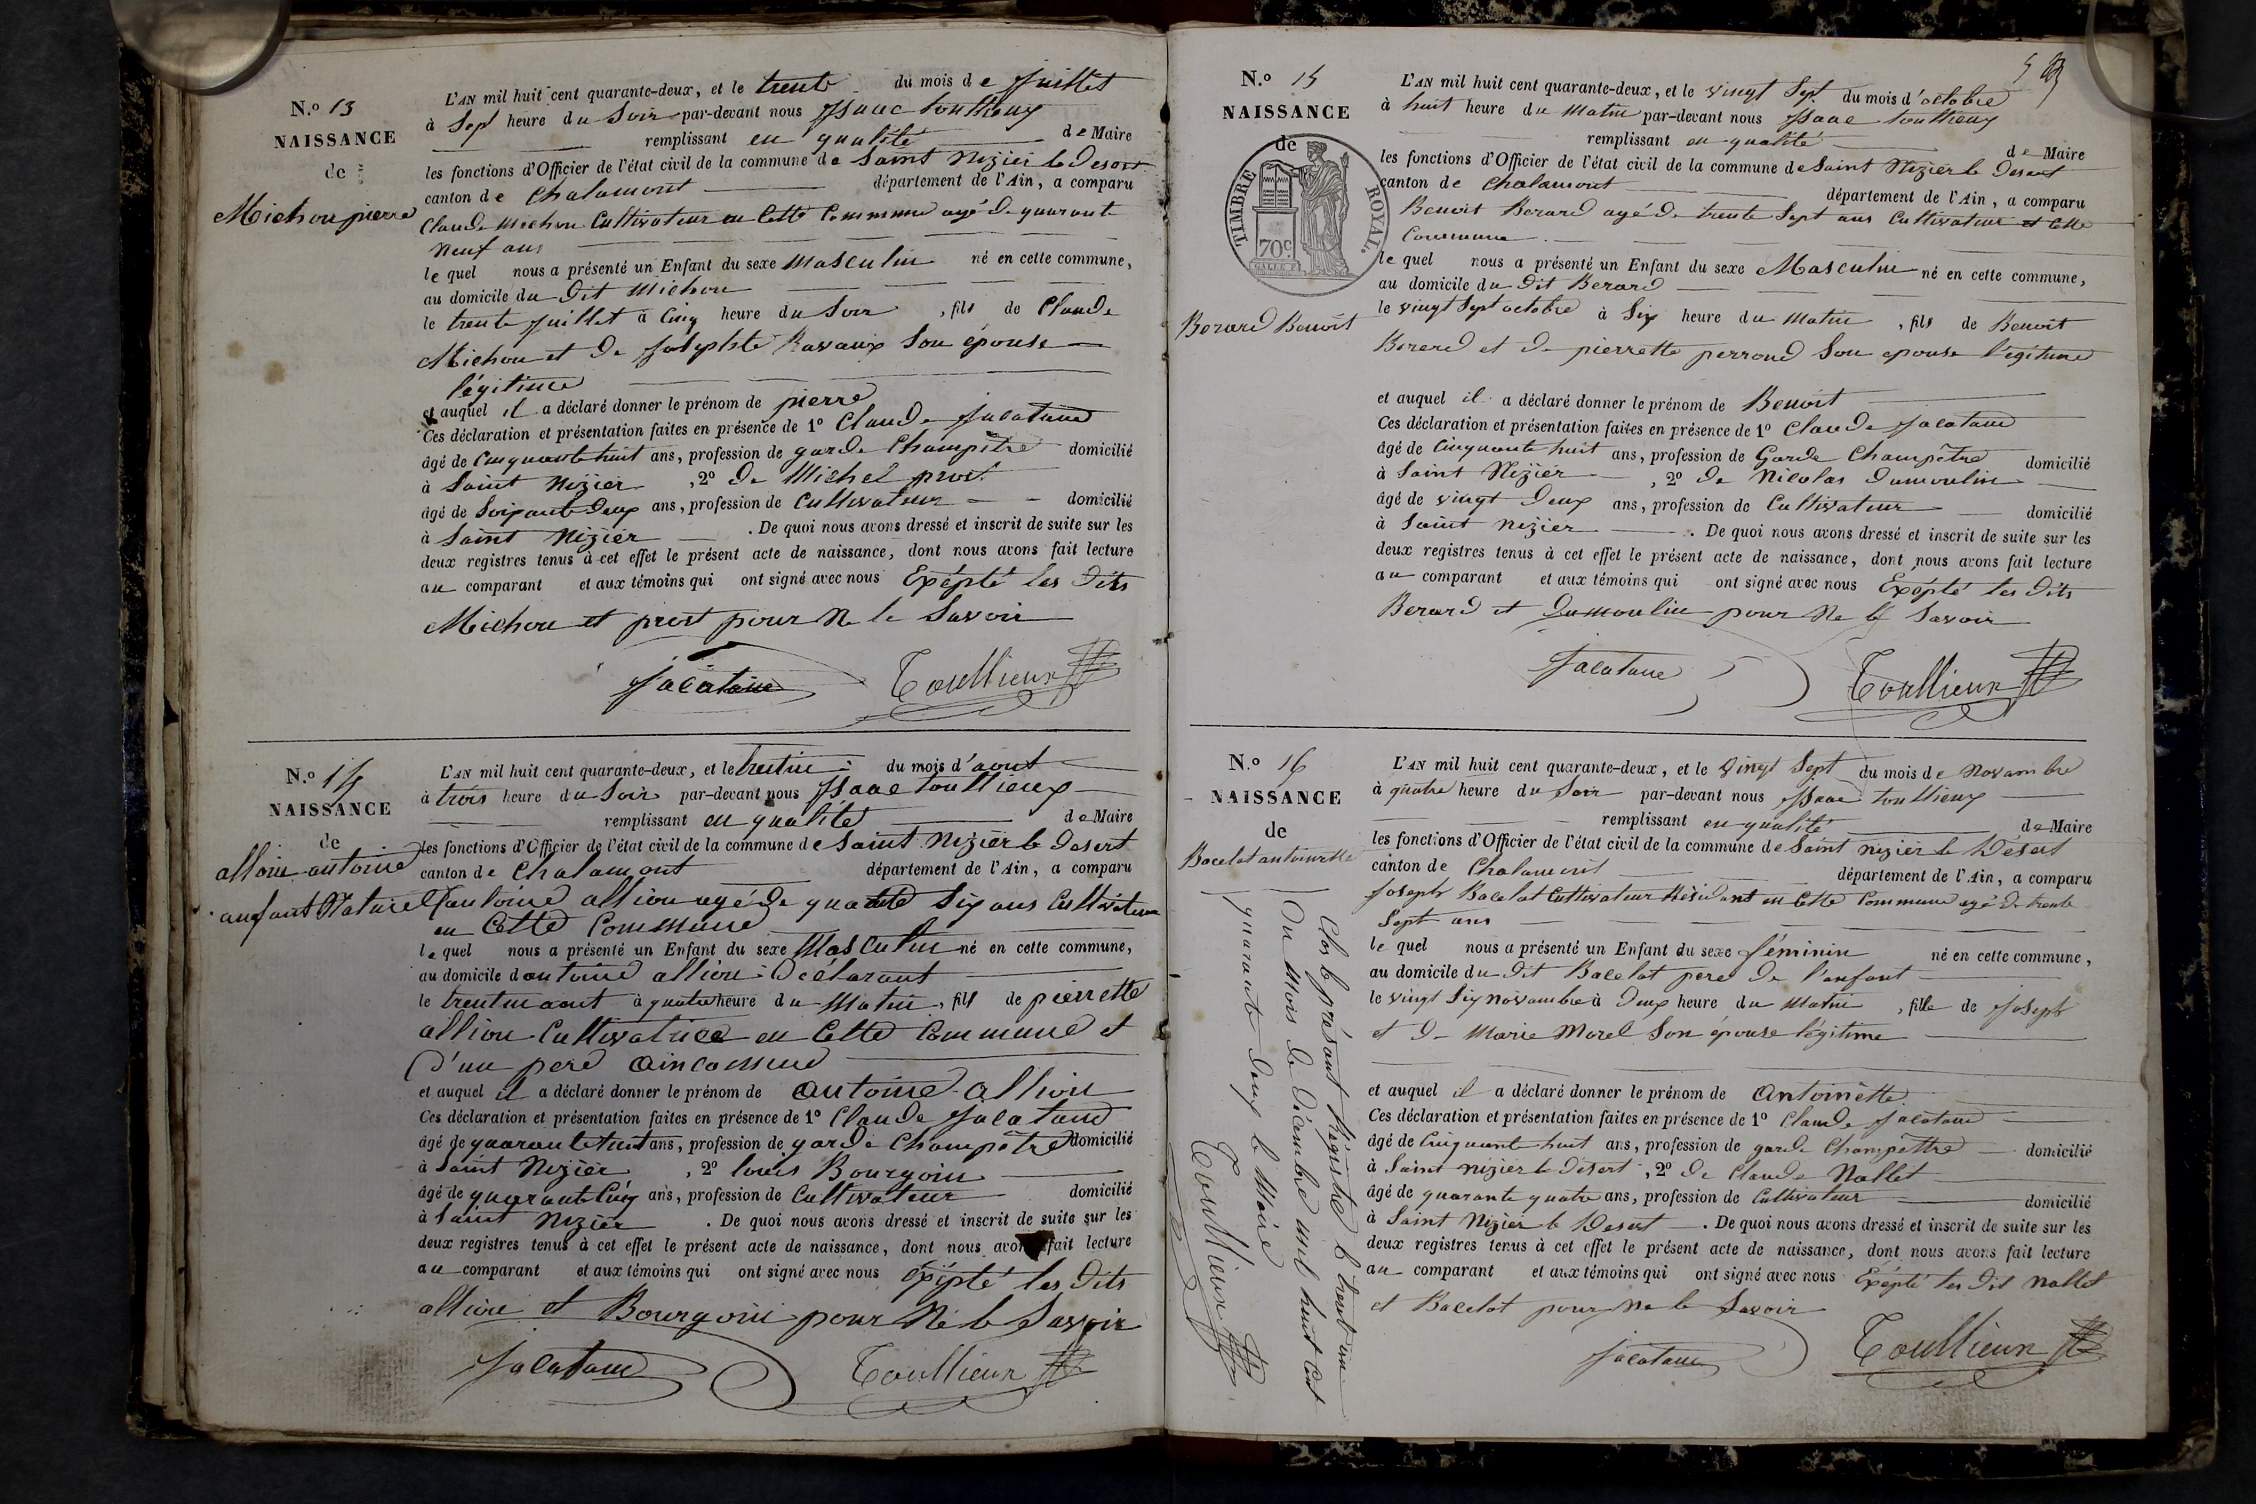 N.o 13
NAISSANCE
de
Michon pierre
L'AN mil huit cent quarante-deux, et le trente du mois de Juillet
à Sept heure du Soir par-devant nous Isaac Toullieux
remplissant en qualité de Maire
les fonctions d'Officier de l'état civil de la commune de Saint Nizier le Desert
canton de Chalamont département de l'Ain, a comparu
Claude Michon Cultivateur en Cette Commune agé de quarante
Neuf ans
le quel nous a présenté un Enfant du sexe Masculin né en cette commune,
au domicile du dit Michon
le trente Juillet à Cinq heure du Soir, fils de Claude
Michon et de Josephte Ravaux Son épouse
légitime
et auquel il a déclaré donner le prénom de pierre
Ces déclaration et présentation faites en présence de 1o Claude Jacatane
âgé de Cinquante huit ans, profession de garde Champêtre domicilié
à Saint Nizier, 2o de Michel prost
âgé de Soixante deux ans, profession de Cultivateur domicilié
à Saint Nizier. De quoi nous avons dressé et inscrit de suite sur les
deux registres tenus à cet effet le présent acte de naissance, dont nous avons fait lecture
au comparant et aux témoins qui ont signé avec nous Exépté les dits
Michon et prost pour Ne le Savoir
Jacatane Toullieux
N.o 14
NAISSANCE
de
allion antoine
enfant Naturel
L'AN mil huit cent quarante-deux, et le trentun du mois d'aout
à trois heure du Soir par-devant nous Isaac toullieux
remplissant en qualité de Maire
les fonctions d'Officier de l'état civil de la commune de Saint Nizier le Desert
canton de Chalamont département de l'Ain, a comparu
antoine allion agé de quarante Six ans Cultivateur
en Cette Commune
le quel nous a présenté un Enfant du sexe Masculin né en cette commune,
au domicile d'antoine allion déclarant
le trentun aout à quatre heure du Matin, fils de pierrette
allion Cultivatrice en Cette Commune et
d'un pere ainconnue
et auquel il a déclaré donner le prénom de antoine allion
Ces déclaration et présentation faites en présence de 1o Claude Jacatane
âgé de quarante huit ans, profession de garde Champêtre domicilié
à Saint Nizier, 2o louis Bourgoin
âgé de quarante Cinq ans, profession de Cultivateur domicilié
à Saint Nizier. De quoi nous avons dressé et inscrit de suite sur les
deux registres tenus à cet effet le présent acte de naissance, dont nous avons fait lecture
au comparant et aux témoins qui ont signé avec nous éxépté les dits
allion et Bourgoin pour Ne le Savoir
Jacatane Toullieux
N.o 15
NAISSANCE
de
TIMBRE ROYAL.
70c
Berard Benoit
L'AN mil huit cent quarante-deux, et le vingt Sept du mois d'octobre
à huit heure du Matin par-devant nous Isaac toullieux
remplissant en qualité de Maire
les fonctions d'Officier de l'état civil de la commune de Saint Nizier le Desert
canton de Chalamont département de l'Ain, a comparu
Benoit Berard agé de trente Sept ans Cultivateur et Cette
Commune
le quel nous a présenté un Enfant du sexe Masculin né en cette commune,
au domicile du dit Berard
le vingt Sept octobre à Six heure du Matin, fils de Benoit
Berard et de pierrette perroud Son epouse légitime
et auquel il a déclaré donner le prénom de Benoit
Ces déclaration et présentation faites en présence de 1o Claude Jacatane
âgé de Cinquante huit ans, profession de Garde Champêtre domicilié
à Saint Nizier, 2o de Nicolas Dumoulin
âgé de vingt deux ans, profession de Cultivateur domicilié
à Saint Nizier. De quoi nous avons dressé et inscrit de suite sur les
deux registres tenus à cet effet le présent acte de naissance, dont nous avons fait lecture
au comparant et aux témoins qui ont signé avec nous Exépté les dits
Berard et Dumoulin pour Ne le Savoir
Jacatane Toullieux
N.o 16
NAISSANCE
de
Bacelot antoinette
L'AN mil huit cent quarante-deux, et le vingt Sept du mois de Novambre
à quatre heure du Soir par-devant nous Isaac toullieux
remplissant en qualité de Maire
les fonctions d'Officier de l'état civil de la commune de Saint nizier le Désert
canton de Chalamont département de l'Ain, a comparu
Joseph Bacelot Cultivateur Résidant en Cette Commune agé de trente
Sept ans
le quel nous a présenté un Enfant du sexe féminin né en cette commune,
au domicile du dit Bacelot pere de l'anfant
le vingt Six novambre à deux heure du Matin, fille de Joseph
et de Marie Morel Son épouse légitime
et auquel il a déclaré donner le prénom de Antoinette
Ces déclaration et présentation faites en présence de 1o Claude Jacatane
âgé de Cinquante huit ans, profession de garde Champêttre domicilié
à Saint nizier le désert, 2o de Claude Nallet
âgé de quarante quatre ans, profession de Cultivateur domicilié
à Saint Nizier le Desert. De quoi nous avons dressé et inscrit de suite sur les
deux registres tenus à cet effet le présent acte de naissance, dont nous avons fait lecture
au comparant et aux témoins qui ont signé avec nous Exépté les dit Nallet
et Bacelot pour Ne le Savoir
Jacatane Toullieux
Clos le présant Régistre le trent'un
Du Mois de Décambre mil huit Cent
quarante deux le Maire
Toullieux